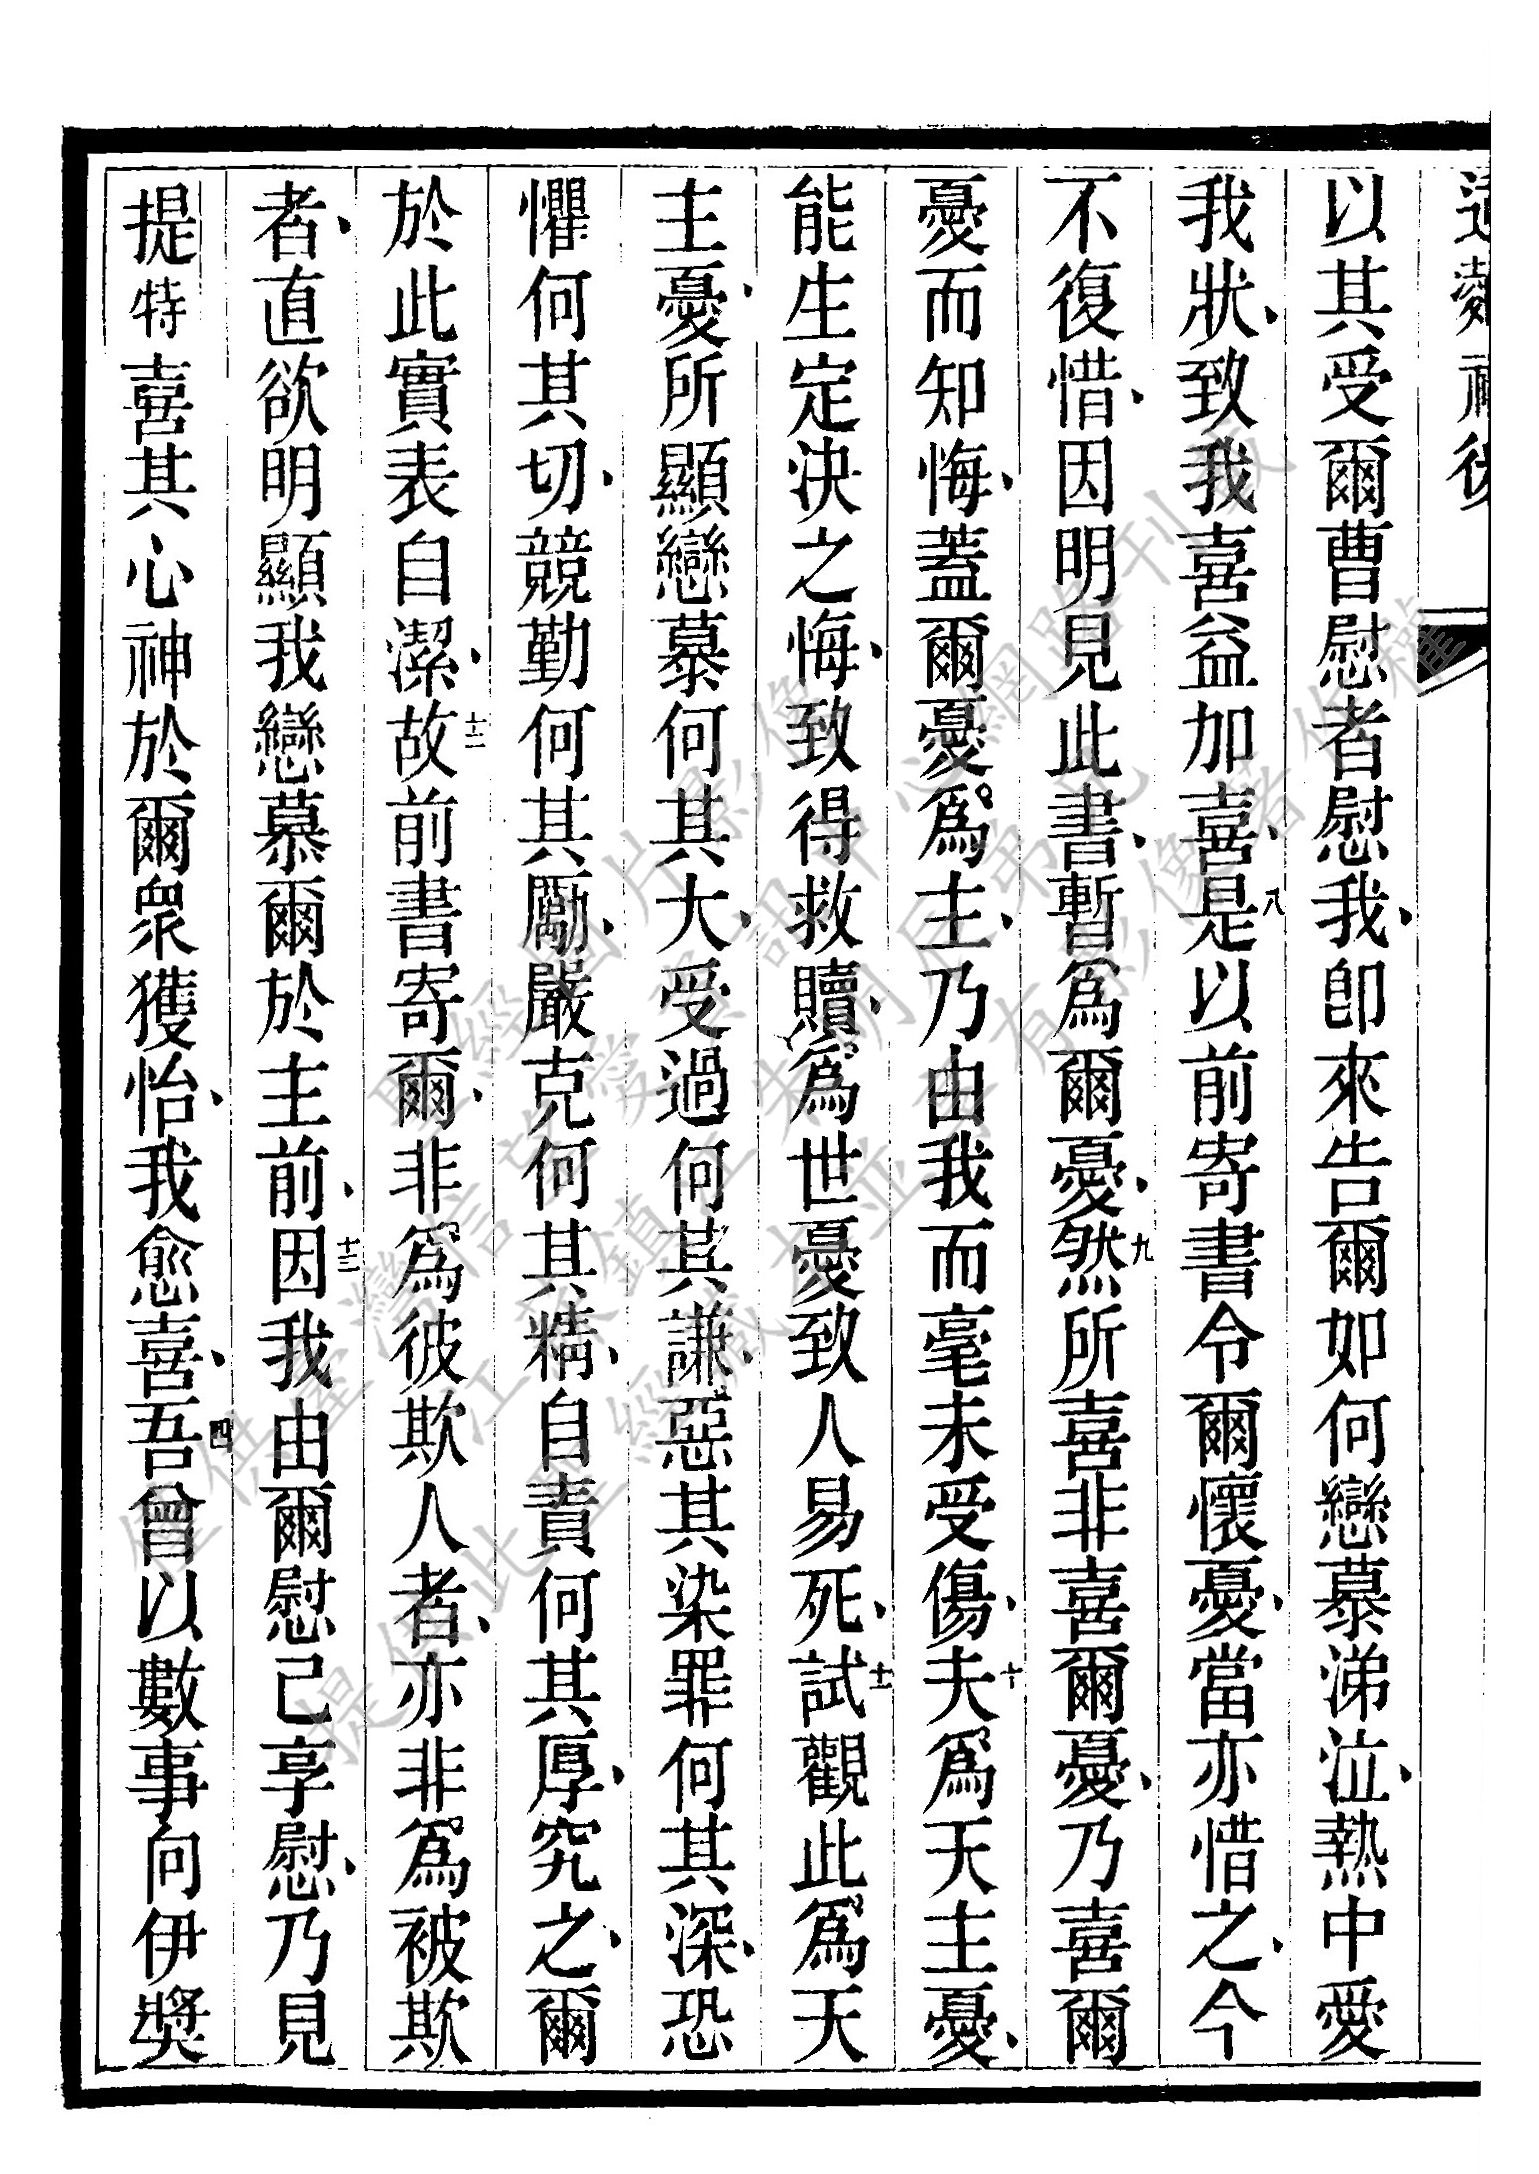 以其受爾曹慰者慰我、卽來告爾如何戀慕涕泣、熱中愛
我狀、致我喜益加喜、八是以前寄書令爾懷憂、當亦惜之、今
不復惜、因明見此書、暫爲爾憂、九然所喜非喜爾憂、乃喜爾
憂而知悔、蓋爾憂爲主、乃由我而毫未受傷、十夫爲天主憂、
能生定決之悔、致得救贖、爲世憂致人易死、十一試觀此爲天
主憂、所顯戀慕何其大、受過何其謙、惡其染罪何其深、恐
懼何其切、競勤何其勵、嚴克何其精、自責何其厚、究之、爾
於此實表自潔、十二故前書寄爾、非爲彼欺人者、亦非爲被欺
者、直欲明顯我戀慕爾於主前、十三因我由爾慰己享慰、乃見
提特喜其心神於爾眾獲怡、我愈喜、四吾曾以數事向伊獎